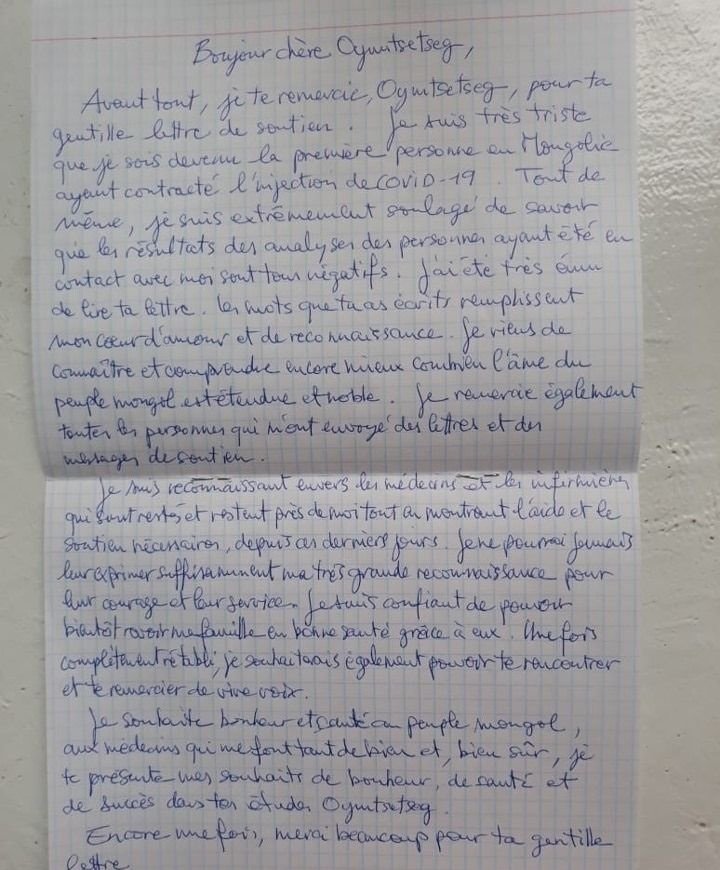 Bonjour chère Oyuntsetseg,
Avant tout, je te remercie, Oyuntsetseg, pour ta
gentille lettre de soutien. Je suis très triste
que je sois devenu la première personne en Mongolie
ayant contracté l'injection de COVID-19. Tout de
même, je suis extrêmement soulagé de savoir
que les résultats des analyses des personnes ayant été en
contact avec moi sont tous négatifs. J'ai été très ému
de lire ta lettre. Les mots que tu as écrits remplissent
mon cœur d'amour et de reconnaissance. Je viens de
connaître et comprendre encore mieux combien l'âme du
peuple mongol est étendue et noble. Je remercie également
toutes les personnes qui m'ont envoyé des lettres et des
messages de soutien.
Je suis reconnaissant envers les médecins et les infirmières
qui sont restés et restent près de moi tout en montrant l'aide et le
soutien nécessaires, depuis ces derniers jours. Je ne pourrai jamais
leur exprimer suffisamment ma très grande reconnaissance pour
leur courage et leur service. Je suis confiant de pouvoir
bientôt revoir ma famille en bonne santé grâce à eux. Une fois
complètement rétabli, je souhaiterais également pouvoir te rencontrer
et te remercier de vive voix.
Je souhaite bonheur et santé au peuple mongol,
aux médecins qui me font tant de bien et, bien sûr, je
te présente mes souhaits de bonheur, de santé et
de succès dans tes études Oyuntsetseg.
Encore une fois, merci beaucoup pour ta gentille
lettre